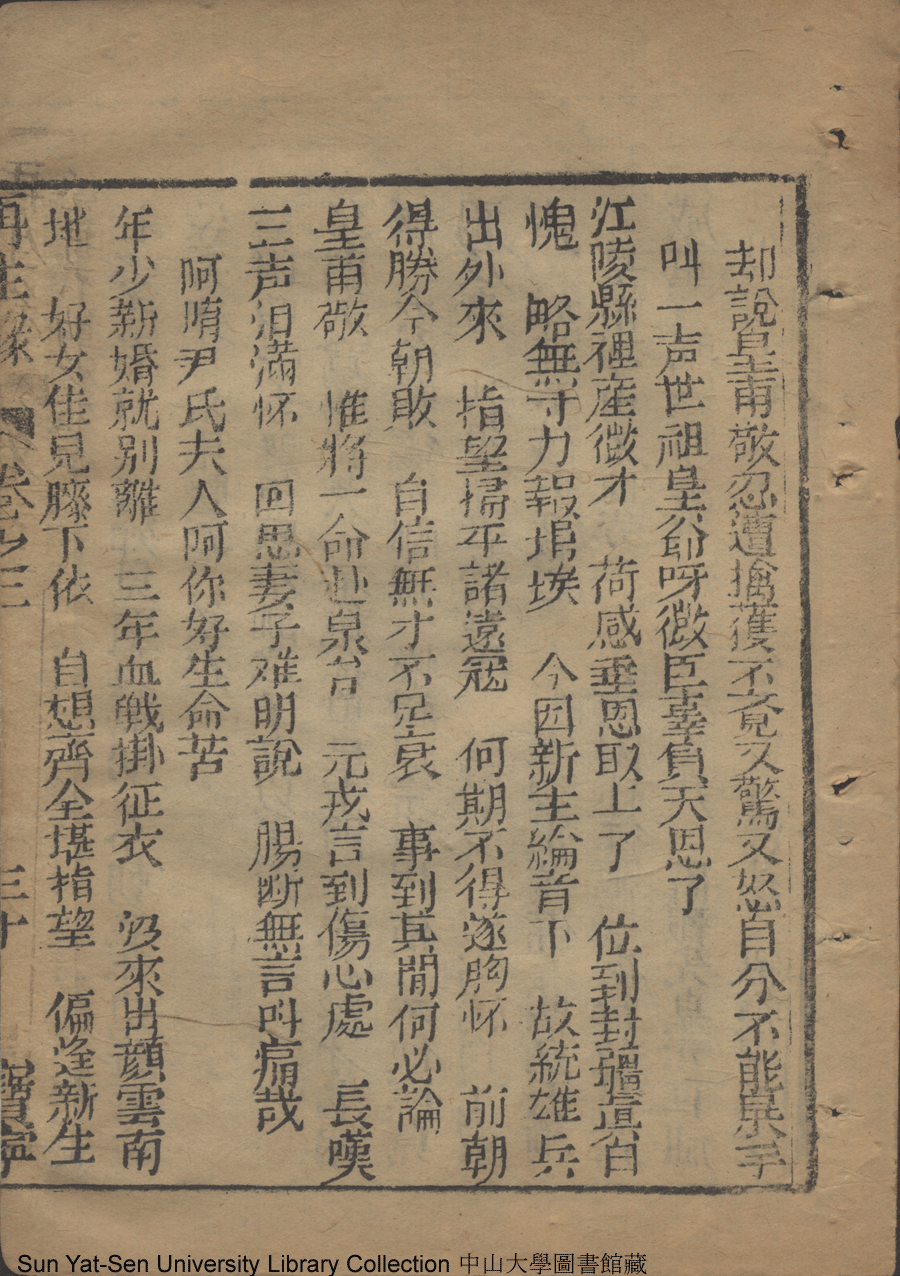 却說皇甫敬忍遭擒獲不覓又驚又怒自分不能異乎
叫一声世祖皇爺呀微臣辜負天恩了
江陵縣裡產微才　荷感垂恩取上了　位到封疆眞自
愧　略無寸力報埳埃　今因新主綸音下　故統雄兵
出外來　指望掃平諸遠冦　何期不得遂胸怀　前朝
得勝今朝敗　自信無才不足哀　事到其間何必論
皇甫敬　惟將一命赴泉台　元戎言到傷心處　長嘆
三声泪滿怀　回思妻子难明說　腸断無言呌痛哉
阿唷尹氏夫人阿你好生命苦
年少新婚就别離　三年血戰掛征衣　後來出顏雲南
地　好女佳兒膝下依　自想齊全堪指望　偏逢新生
再生緣　卷之三　三十　寶寧
Sun Yat-Sen University Library Collection 中山大學圖書館藏